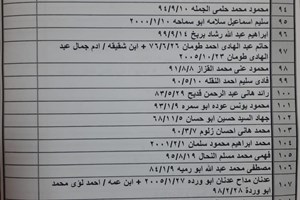 ٩٤ محمود محمد حلمى الجمله ٩٤/٩/١٠
٩٥ سليم اسماعيل سلامه ابو سماحه ٢٠٠٠/١/١٠
٩٦ ابراهيم عبد الله رشاد بريخ ٩٩/٩/١٤
٩٧ حاتم عبد الهادى احمد طومان ٧٦/٦/٢٦ + ابن شقيقه / ادم جمال عبد
الهادى طومان ٢٠٠٥/١٠/٢٣
٩٨ محمود على محمد القزاز ٩١/٨/٨
٩٩ فادى سليم احمد النقله ٩٠/٥/١٠
١٠٠ رائد هانى عبد الرحمن قديح ٨٣/٥/٢٩
١٠١ محمود يونس عوده ابو سمره ٩٣/١/٩
١٠٢ جهاد السيد حسين ابو حسان ٦٨/١١/٥
١٠٣ محمد هانى احسان زلوم ٩٠/٣/٧
١٠٤ محمد ابراهيم محمود سلمان ٢٠٠١/٢/١
١٠٥ فهمى محمد مسلم النحال ٩٥/٨/١٩
١٠٦ مصطفى محمد عبد الله ربيه ٨٤/١/٩
١٠٧ عدنان مداح عدنان ابو ورده ٢٠٠٥/١/٢٧ + ابن عمه / احمد لؤى محمد
ابو وردة ٩٨/٢/٢٨